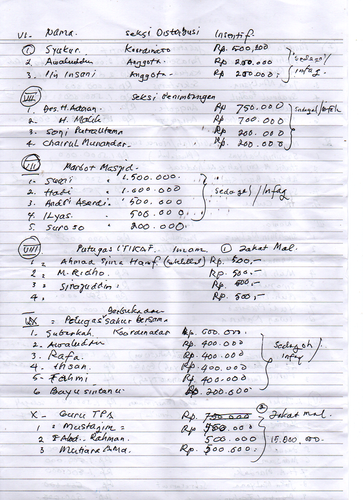 VI. Nama. Seksi Distribusi Insentif.
1 Syukur. Koordinato Rp. 500.000
2. Awaluddin Anggota. Rp 200.000 Sedaqoh/
3. Iin Insani Anggota- Rp 200.000. Infaq.
VII. Seksi Penimbangan
1. Drs. H. Adnan. Rp 750.000 /Infaq
2. H. Malik Rp 700.000
3. Soni Putrautama Rp. 200.000
4- Chairul Munandar. Rp. 200.000.
VII Marbot Masjid.
1- 1.500.000.
2. Hadi 1.000.000
3. Andri 500.000 Sedaqah/Infaq
4. ILyas. 500.000.
5. Suroso 200.000.
VIII Petugas I'TIKAF. Imam. 1 Zakat Mal.
1. Ahmad Hanif Rp. 500,-
2. M. Ridho. Rp. 500,-
3. Sirojuddin. Rp. 500,-
4. Rp. 500,-
Berbuka dan
IX = Petugas Sahur Bersama.
1- Koordinator Rp. 600.000.
2. Awaluddin Rp. 400.000 Sedaqoh/
3. Rafa. Rp. 400.000 infaq
4. Ihsan. Rp. 400.000
5- Fahmi Rp. 400.000
6 Bayu Rp. 200.000
X - Guru TPA Rp. 750.000 2 Zakat mal.
1 = Mustaqim = Rp 550.000
2 Abd. Rahman. 500.000 15.000.000.
3 Rp. 500.000.